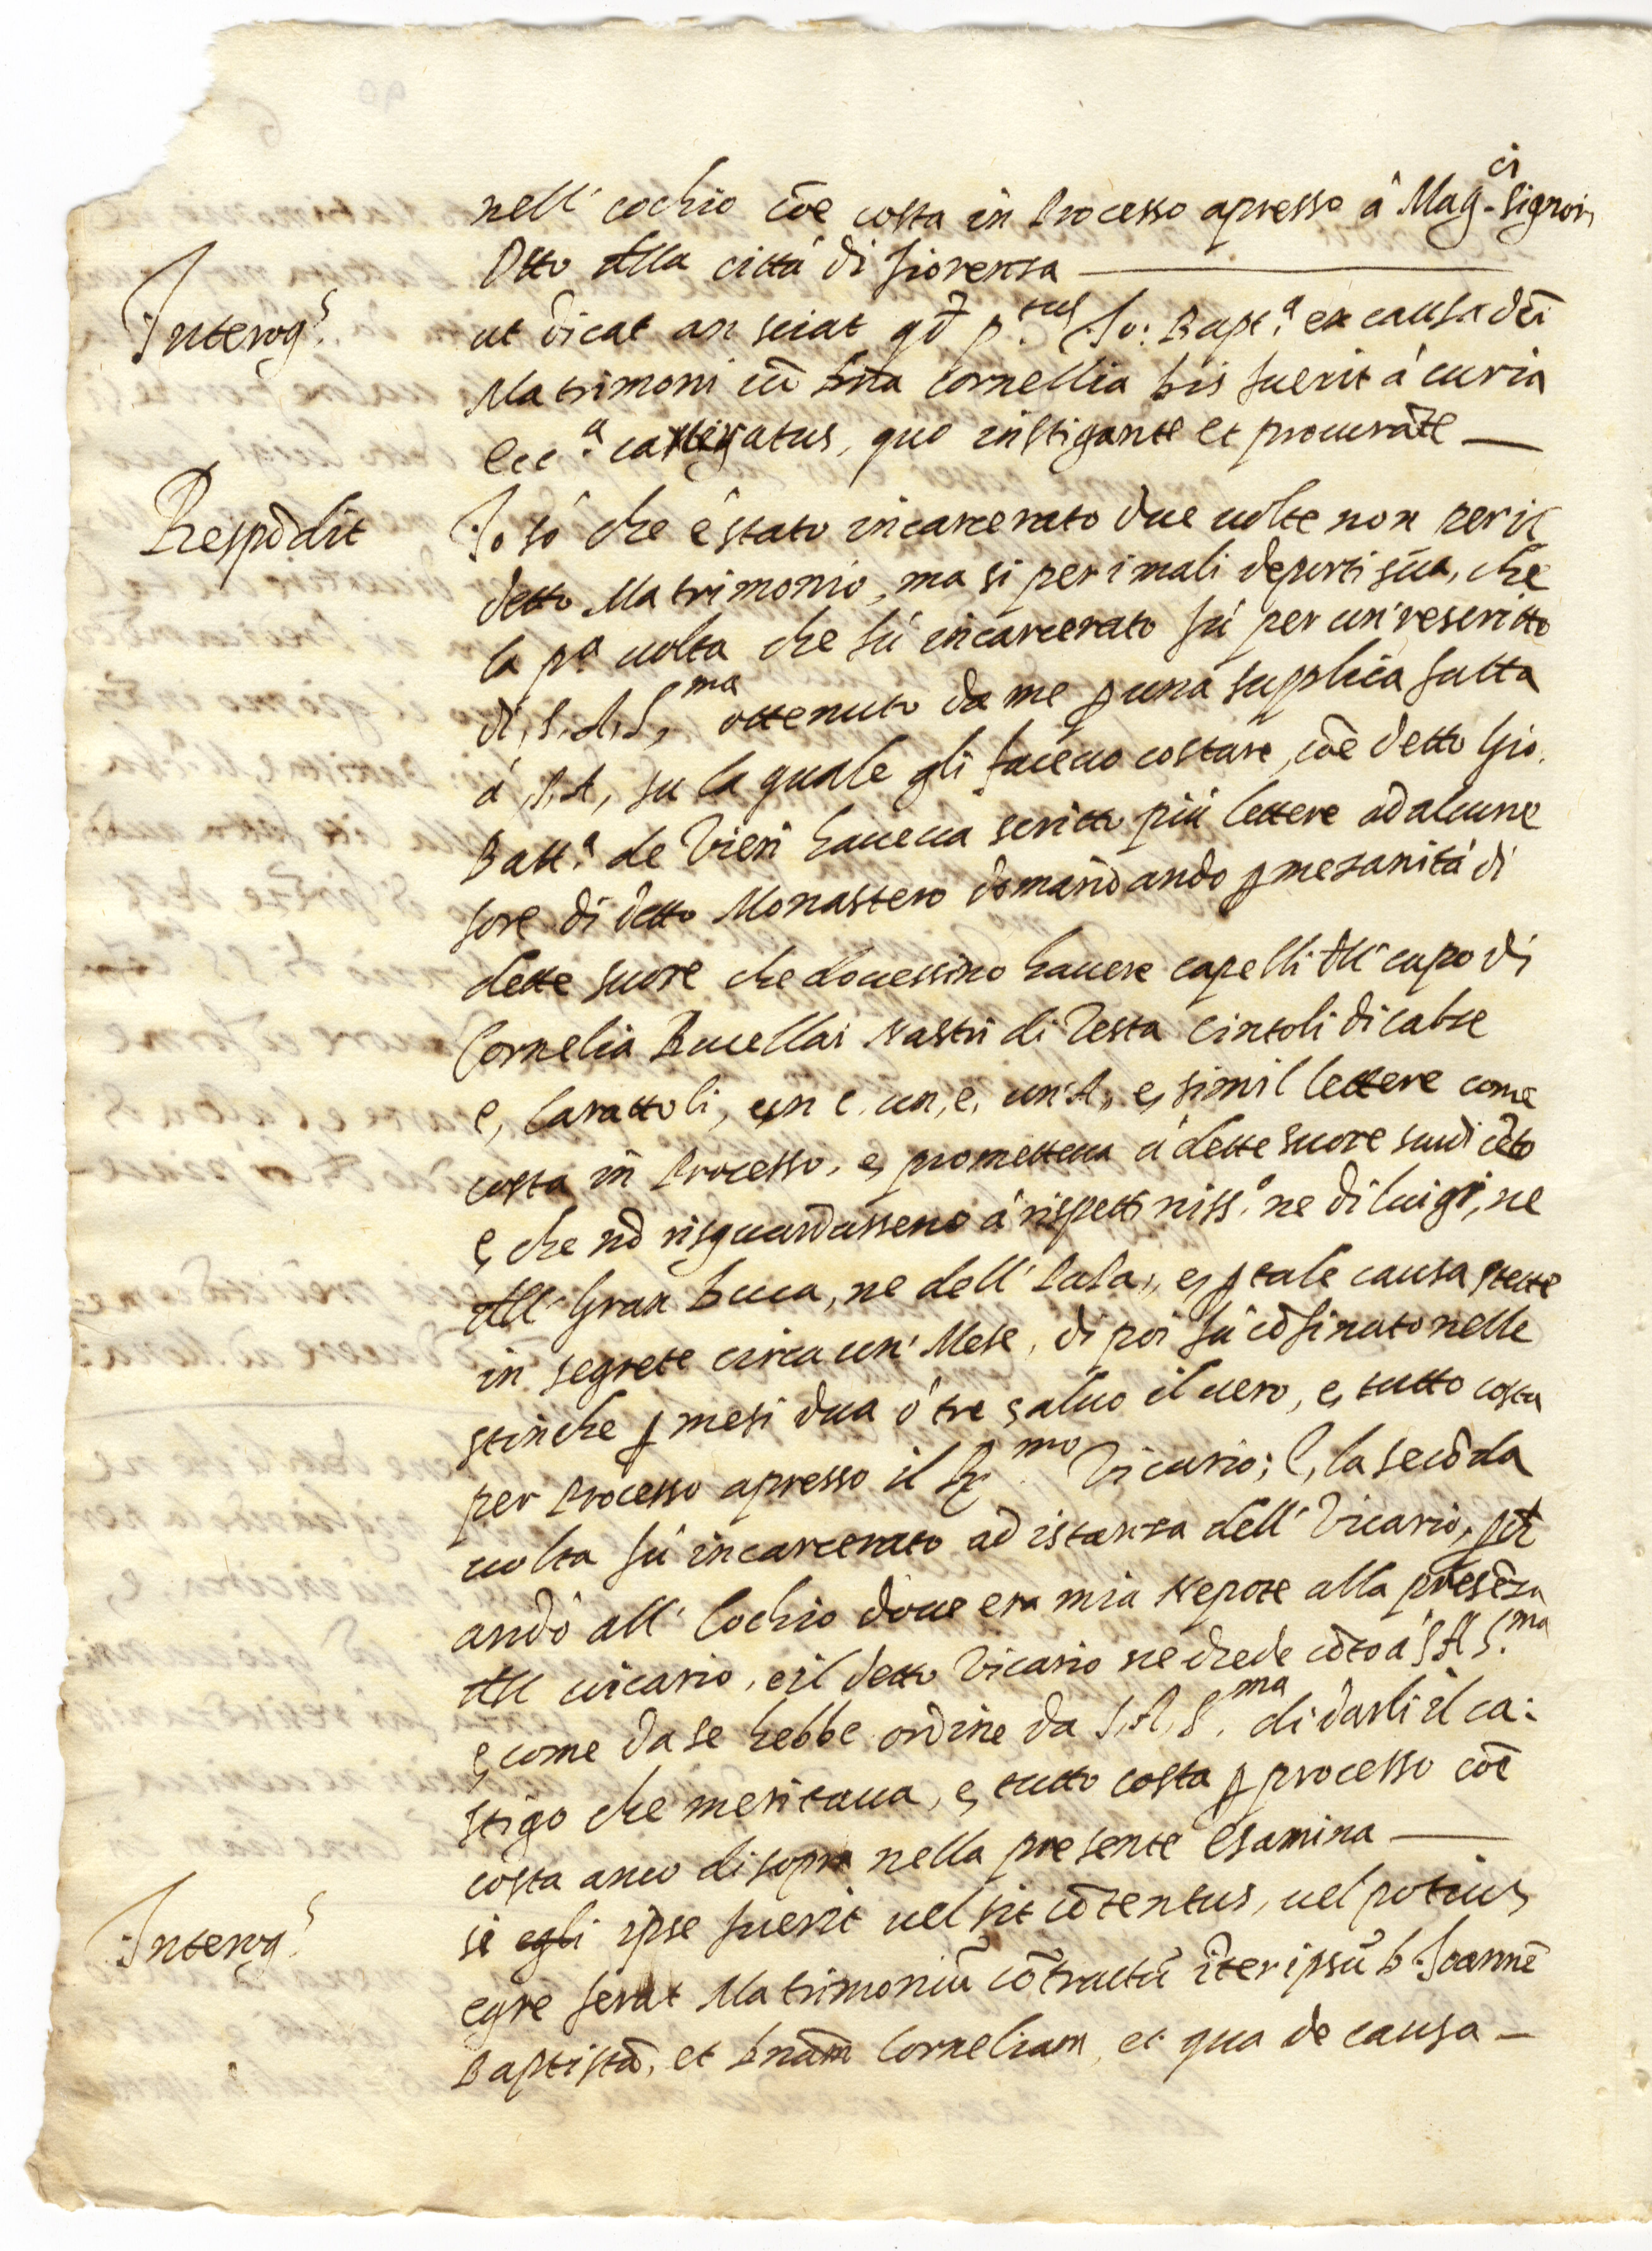 nell' cochio cōe costa in Processo apresso á Mag.ci Signori
Otto della cittá di Fiorenza
Interog.s ut dicat an sciat qd p.tus Jo: Bapt.a ex causa dēi
Matrimoni cū Dna Cornellia bis fuerit á curia
ecc.a castigatus, quo instigante et procurāte
Respōdit Io só che é stato incarcerato due uolte non per il
detto Matrimonio, ma si per i mali deporti sua, che
la p.a uolta che fú incarcerato fú per un' rescritto
di, S, A, S,ma ottenuto da me p una supplica fatta
á ,S,A, su la quale gli faceuo costare, cōe detto Gio.
Batt.a de Vieri haueua scritto piú lettere ad alcune
sore di detto Monastero domandando p mezanitá di
dette suore che douessino hauere capelli dell' capo di
Cornelia Rucellai nastri di Testa Cintoli di calze
e, Carattoli, un c. un, e, un' A, e, simil lettere come
costa in Processo, e, prometteua á dette suore
e, che nō risguardasseno á rispetti niss.o ne di luigi, ne
dell' Gran Duca, ne dell' Papa, e, p tale causa stette
in segrete circa un' Mese, di poi fú cōfinato nelle
stinche p mesi dua ó tre saluo il uero, e, tutto costa
per Processo apresso il R.mo Vicario; E, la secōda
uolta fú incarcerato ad istanza dell' Vicario,
andó all' Cochio doue era mia Nepote alla presēza
dell uicario, e il detto Vicario ne diede cōto á S A S.ma
e, come da se hebbe ordine da S, A, S.ma di darli il ca:
stigo che meritaua, e, tutto costa p processo cōe
costa anco di sopra nella presente esamina
Interog.s si egli ipse fuerit uel sit cōtentus, uel potius
egre ferat Matrimoniū cōtractū īter ipsū D. Joannē
Baptistā, et Dnām Corneliam, et qua de causa